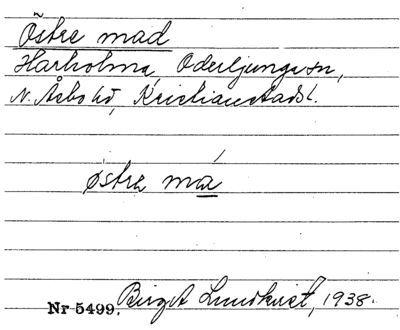 Östre mad
Harholma, Oderljunga sn,
N. Åsbo hd, Kristianstads l.
østrə ma
Nr 5499. Birgit Lundkvist, 1938.